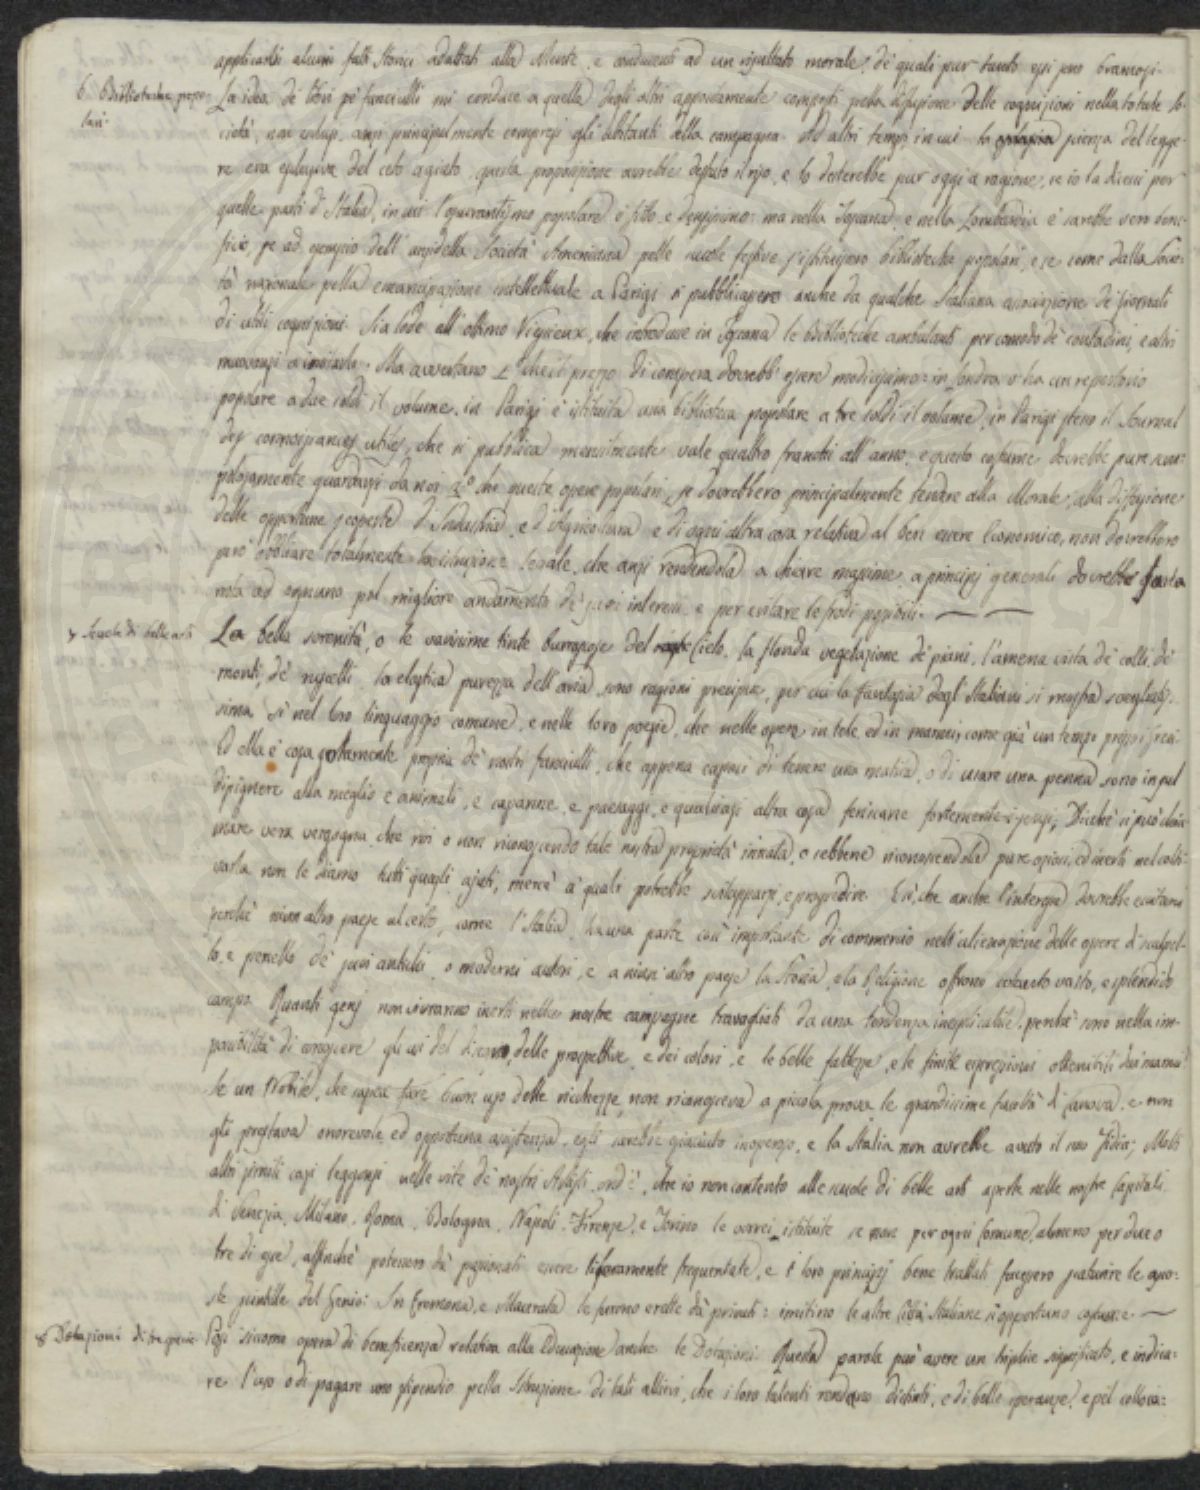 applicarsi alcuni fatti storici adattati alla Mente, e conducenti ad un risultato morale, de' quali pur tanto essi sono bramosi.
6. Biblioteche popolari.
La idea de' libri pe' fanciulli mi conduce a quella degli altri appositamente composti pella diffusione delle cognizioni nella totale So-
cietà, non esclusi, anzi principalmente compresi gli abitanti della campagna. Ad altri tempi in cui la scienza del legge-
re era esclusiva del ceto agiato, questa proposizione avrebbe destato il riso, e lo desterebbe pur oggi a ragione, se io la dicessi per
quelle parti d'Italia, in cui l'ignorantismo popolare è fitto, e densissimo: ma nella Toscana, e nella Lombardia e' sarebbe vero bene-
ficio, se ad esempio dell' Società Americana pelle scuole festive s'istituissero biblioteche popolari, e se come dalla Socie-
tà nazionale pella emancipazione intellettuale a Parigi si pubblicassero anche da qualche Italiana associazione de' giornali
di utili cognizioni. Sia lode all' ottimo Vieusseux, che introdusse in Toscana le Biblioteche ambulanti per comodo de' contadini, e altri
muovansi a imitarlo. Ma avvertano 1° che il prezzo di compera dovrebb' essere modicissimo: in Londra v'ha un repertorio
popolare a due soldi il volume, in Parigi è istituita una biblioteca popolare a tre soldi il volume, in Parigi stesso il Journal
des connaissances utiles, che si pubblica mensilmente vale quattro franchi all' anno, e questo costume dovrebbe pure scru-
polosamente guardarsi da noi 2° che queste opere popolari, se dovrebbero principalmente tendere alla Morale, alla diffusione
delle opportune scoperte d'Industria, e d'Agricoltura e di ogni altra cosa relativa al ben essere Economico, non dovrebbero
però obbliare totalmente la istruzione legale, che anzi rendendola a chiare massime, a principj generali dovrebbe farla
nota ad ognuno pel migliore andamento de' suoi interessi e per evitare le frodi possibili.
7 Scuole di belle arti
La bella serenità, o le varissime tinte burrascose del Cielo, la florida vegetazione de' piani, l'amena vista de' colli, de'
monti, de' ruscelli, la elastica purezza dell' aria, sono ragioni precipue, per cui la fantasia degl' Italiani si mostra svegliatis-
sima, sì nel loro linguaggio comune, e nelle loro poesie, che nelle opere in tele, ed in marmi, come già un tempo presso i Greci.
Ed ella è cosa propria de' nostri fanciulli, che appena capaci di tenere una matita, o di usare una penna sono in sul
dipignere alla meglio e animali, e capanne, e paesaggi, e qualsiasi altra cosa fericane fortemente i sensi. Dicchè si può chia-
mare vera vergogna che noi o non riconoscendo tale nostra proprietà innata, o sebbene riconoscendola pure oziosi, ed inerti nel colti-
varla non le diamo tutti quegli ajuti, mercè a' quali potrebbe svilupparsi, e progredire. E sì, che anche l'interesse dovrebbe eccitarci
perchè niun altro paese al certo, come l'Italia, ha una parte così importante di commercio nell' alienazione delle opere di scalpel-
lo, e penello de' suoi antichi, o moderni autori, e a niun altro paese la Storia, e la Religione offrono cotanto vasto, e splendido
campo. Quanti genj non vivranno inerti nelle nostre campagne travagliati da una tendenza inesplicabile, perchè sono nella im-
possibilità di conoscere gli usi del disegno, delle prospettive, e dei colori, e le belle fattezze, e le finite espressioni ottenibili dai marmi!
Se un Nobile, che sapea fare buon uso delle ricchezze, non riconosceva a piccola prova le grandissime facoltà di Canova, e non
gli prestava onorevole, ed opportuna assistenza, egli sarebbe giaciuto inoperoso, e la Italia non avrebbe avuto il suo Fidia; Molti
altri simili casi leggonsi nelle vite de' nostri Artisti, ond'è, che io non contento alle scuole di belle arti aperte nelle nostre Capitali
di Venezia, Milano, Roma, Bologna, Napoli, Firenze, e Torino le vorrei istituite se non per ogni Comune, almeno per due o
tre di essi, affinchè potessero da' paesani essere liberamente frequentate, e i loro principj bene trattati facessero scaturire le asco-
se scintille del Genio: In Cremona, e Macerata le furono erette da' privati: imitino le altre Città Italiane sì opportuno costume.
8 Dotazioni di tre specie
Pogo siccome opera di beneficenza relativa alla Educazione anche le Dotazioni. Questa parola può avere un triplice significato, e indica-
re l'uso o di pagare uno stipendio pella Istruzione di tali allievi, che i loro talenti rendano distinti, e di belle speranze, e pel colloca-